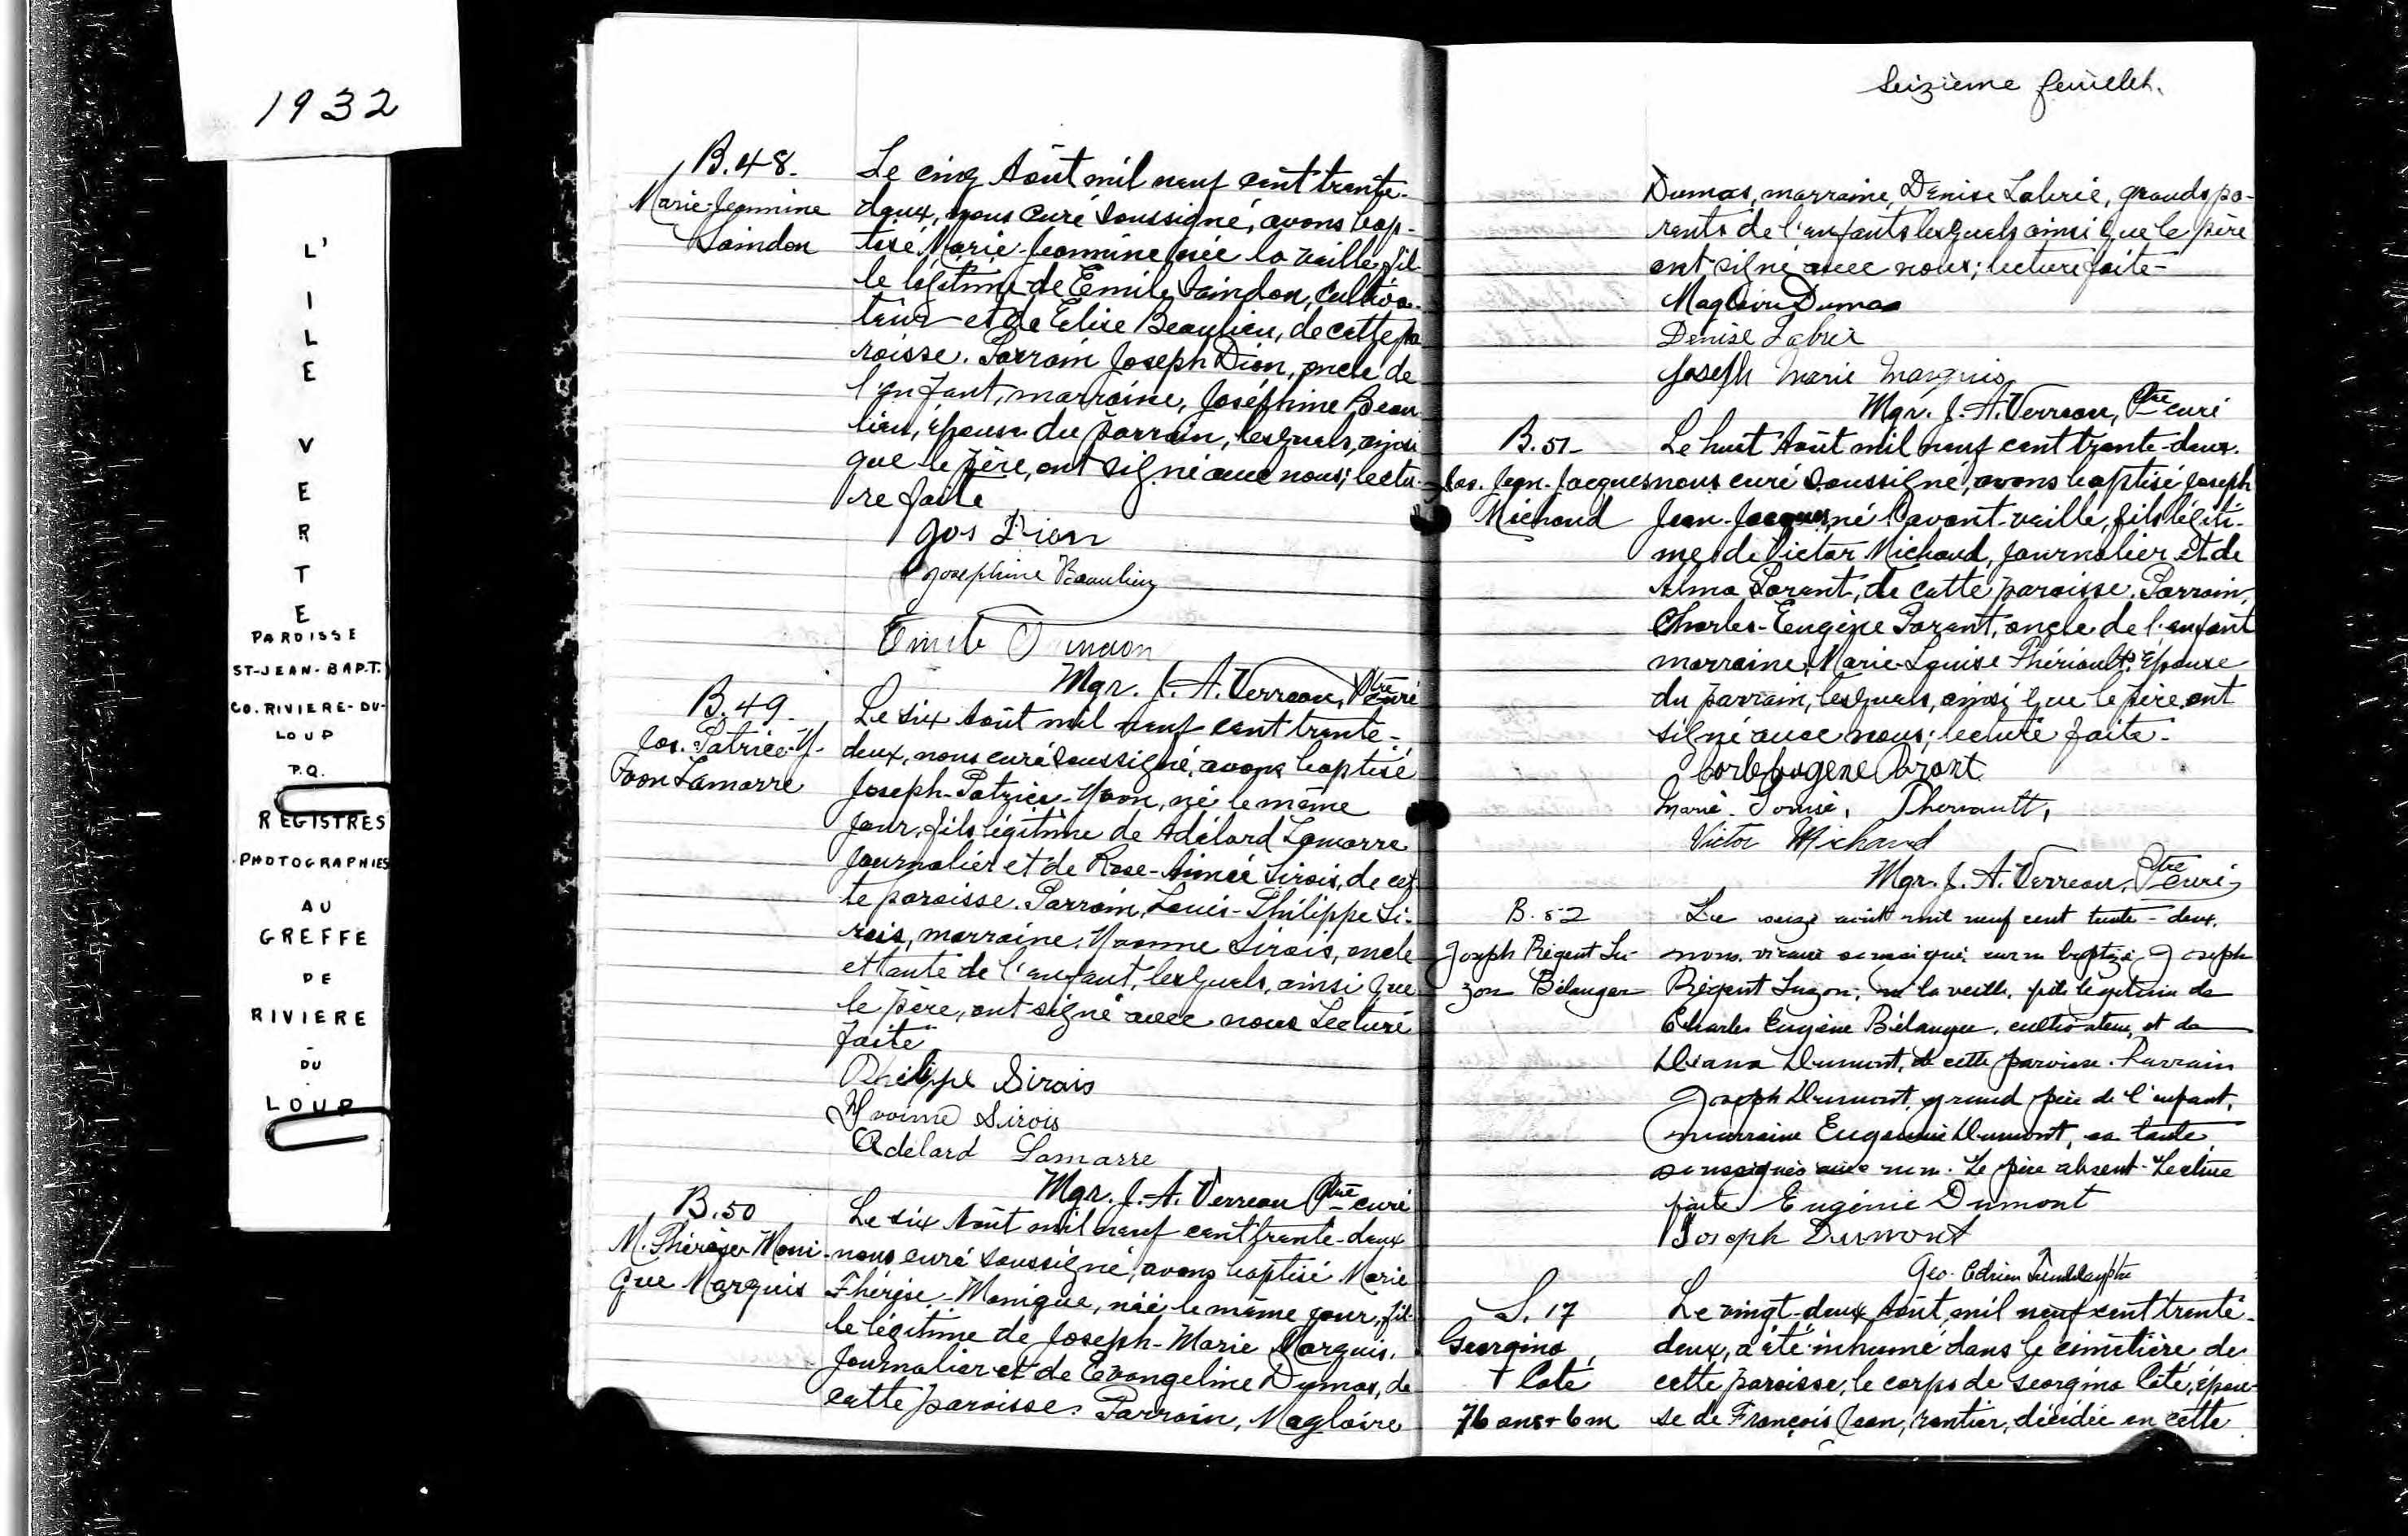 1932
L'
I
L
E
V
E
R
T
E
PAROISSE
ST-JEAN-BAPT.
CO. RIVIERE-DU-
LOUP
P.Q.
REGISTRES
PHOTOGRAPHIES
AU
GREFFE
DE
RIVIERE
-
DU
LOUP
B.48.
Marie-Jeannine
Saindon
Le cinq Août mil neuf cent trente-
deux, nous curé soussigné, avons bap-
tisé Marie-Jeannine née la veille, fil-
le légitime de Emile Saindon, cultiva-
teur et de Elise Beaulieu, de cette pa
roisse. Parrain Joseph Dion, oncle de
l'enfant, marraine, Joséphine Beau
lieu, épouse du parrain, lesquels, ainsi
que le père, ont signé avec nous; lectu-
re faite
Jos Dion
Josephine Beaulieu
Emile
Mgr. J. A. Verreau, Ptre curé
B.49.
Jos. Patrice-Y-
von Lamarre
Le six Août mil neuf cent trente-
deux, nous curé soussigné, avons baptisé
Joseph-Patrice-Yvon, né le même
jour, fils légitime de Adélard Lamarre
journalier et de Rose-Aimée Sirois, de cet-
te paroisse. Parrain, Louis-Philippe Si-
rois, marraine, Yvonne Sirois, oncle
et tante de l'enfant, lesquels, ainsi que
le père, ont signé avec nous Lecture
faite
Philippe Sirois
Yvonne Sirois
Adelard Lamarre
Mgr. J. A. Verreau Ptre curé
B.50
M. Thérèse Moni-
que Marquis
Le six Août mil neuf cent trente-deux
nous curé soussigné, avons baptisé Marie
Thérèse-Monique, née le même jour, fil-
le légitime de Joseph-Marie Marquis,
journalier et de Evangeline Dumas, de
cette paroisse. Parrain, Magloire
Seizième feuillet.
Dumas, marraine, Denise Labrie, grands pa-
rents de l'enfants lesquels ainsi que le père
ont signé avec nous; lecture faite-
Magloire Dumas
Denise Labrie
Joseph Marie Marquis
Mgr. J. A. Verreau, Ptre curé
B.51-
Jos. Jean-Jacques
Michaud
Le huit Août mil neuf cent trente-deux.
nous curé soussigné, avons baptisé Joseph
Jean-Jacques, né l'avant-veille, fils légiti-
me de Victor Michaud, journalier et de
Alma Parent, de cette paroisse. Parrain,
Charles-Eugène Parent, oncle de l'enfant
marraine, Marie-Louise Thériault, épouse
du parrain, lesquels, ainsi que le père, ont
signé avec nous; lecture faite-
Marie. Louise, Theriault,
Victor Michaud
Mgr. J. A. Verreau, Ptre curé
B.52
Joseph Régent Lu-
zon Bélanger
Le seize août mil neuf cent trente-deux,
nous vicaire soussigné, avons baptisé Joseph
Régent Luzon, né la veille, fils légitime de
Charles Eugène Bélanger, cultivateur, et de
Diana Dumont, de cette paroisse. Parrain
Joseph Dumont, grand père de l'enfant,
marraine Eugénie Dumont, sa tante,
soussignés avec nous. Le père absent. Lecture
faite Eugénie Dumont
Joseph Dumont
Geo. Adrien Tremblay ptre
S. 17
Georgina
Coté
76 ans + 6 m
Le vingt-deux Août mil neuf cent trente-
deux, a été inhumé dans le cimetière de
cette paroisse, le corps de Georgina Coté, épou-
se de François Jean, rentier, décédée en cette